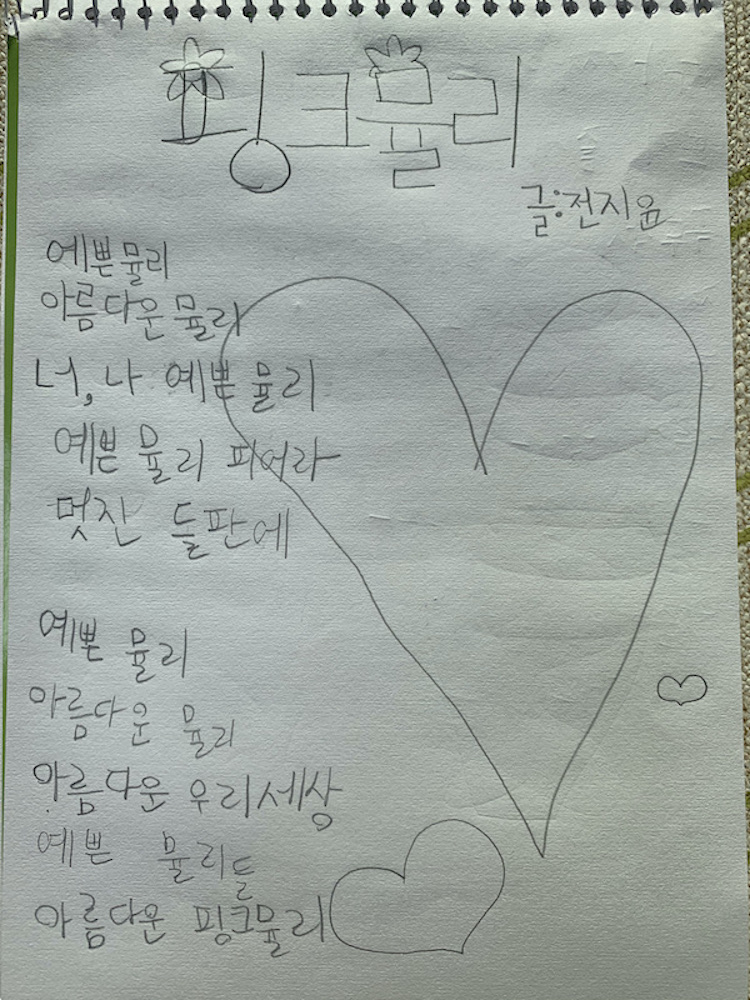 핑크뮬리
글:전지윤
예쁜뮬리
아름다운뮬리
너,나 예쁜뮬리
예쁜 뮬리 피어라
멋진 들판에
예쁜 뮬리
아름다운 뮬리
아름다운 우리세상
예쁜 뮬리들
아름다운 핑크뮬리